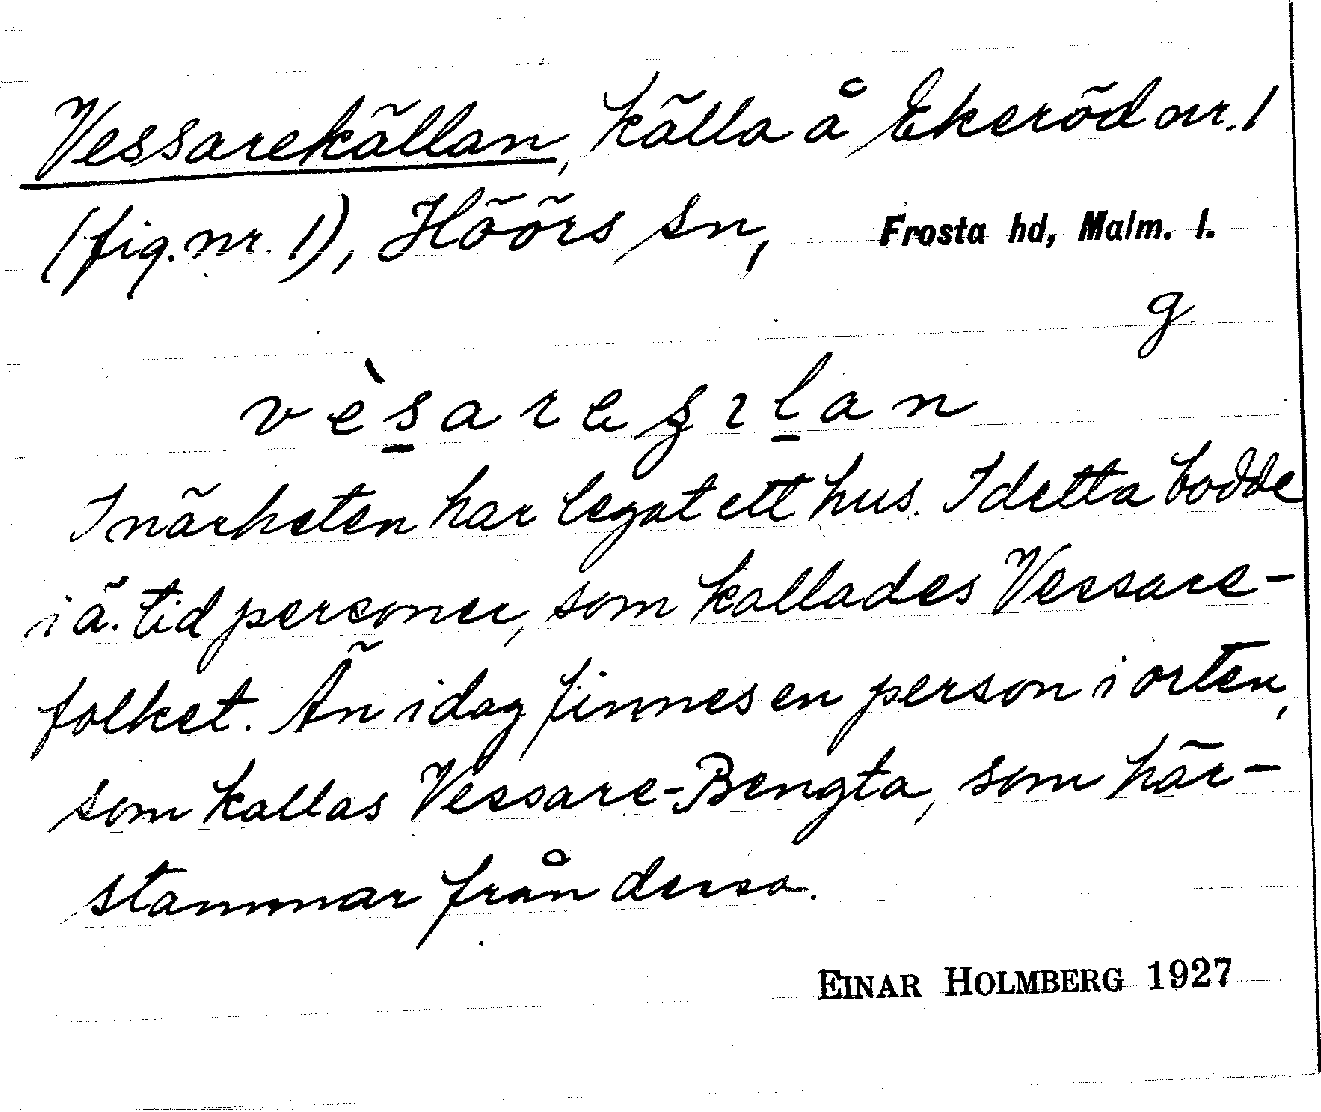 Vessarekällan, källa å Ekeröd nr. 1
(fig. nr. 1), Höörs sn, Frosta hd, Malm. l.
g
I närheten har legat ett hus. I detta bodde
i ä. tid personer, som kallades Vessare-
folket. Än i dag finnes en person i orten,
som kallas Vessare-Bengta, som här-
stammar från dessa.
EINAR HOLMBERG 1927